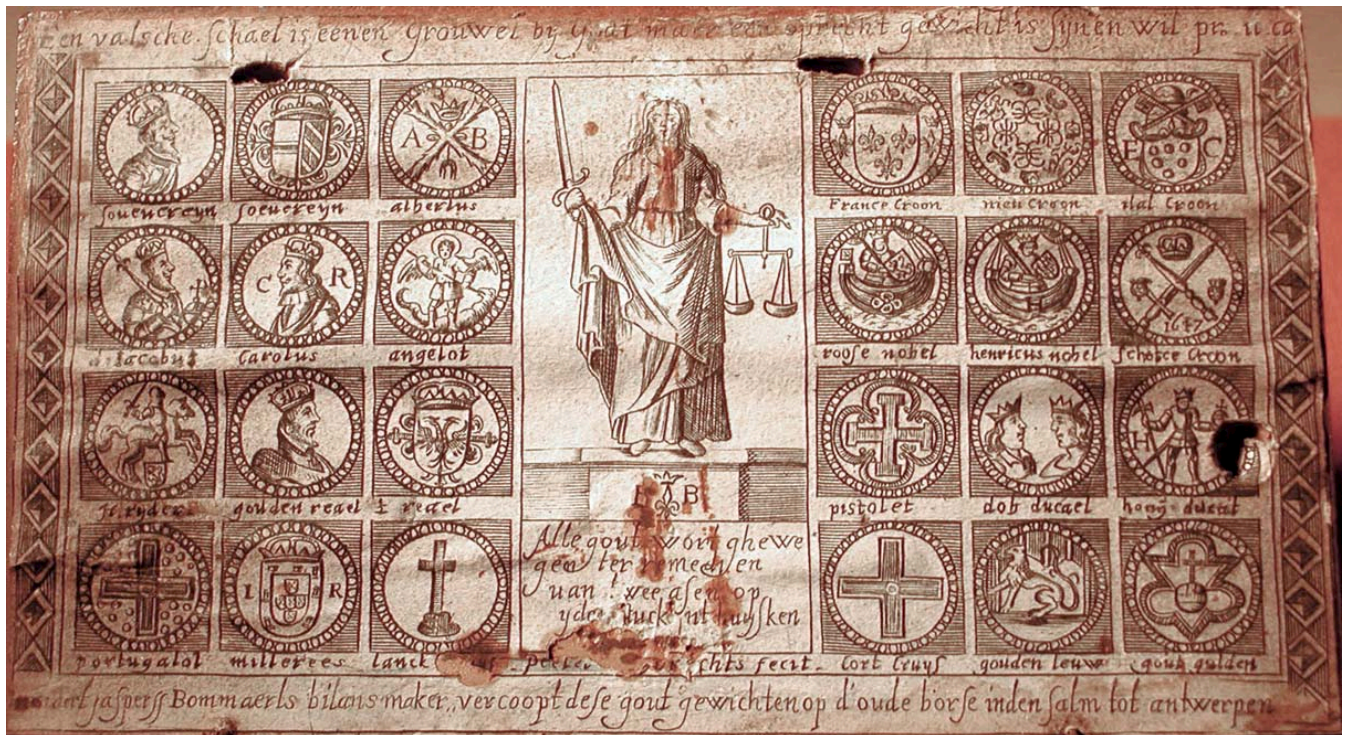 Een valsche schael is eenen grouwel by Godt maer een oprecht gewicht is synen wil pro. 11. ca
A B
E C
souvereyn soeuereyn albertus
France Croon nieu Croon Ital Croon
C R
1647
Jacobus Carolus angelot
roose nobel henricus nobel schotse Croon
H
ryder gouden reael ½ reael
pistolet dob ducaet hong ducat
B
Alle gout wort ghewe
gen ter remedien
van twee asen op
yder stuck
L R
portugalol millerees lanck
fecit
Cort Cruys gouden leuw gout gulden
jasperss Bommaerts bilansmaker, vercoopt dese gout gewichten op d'oude borse inden salm tot antwerpen